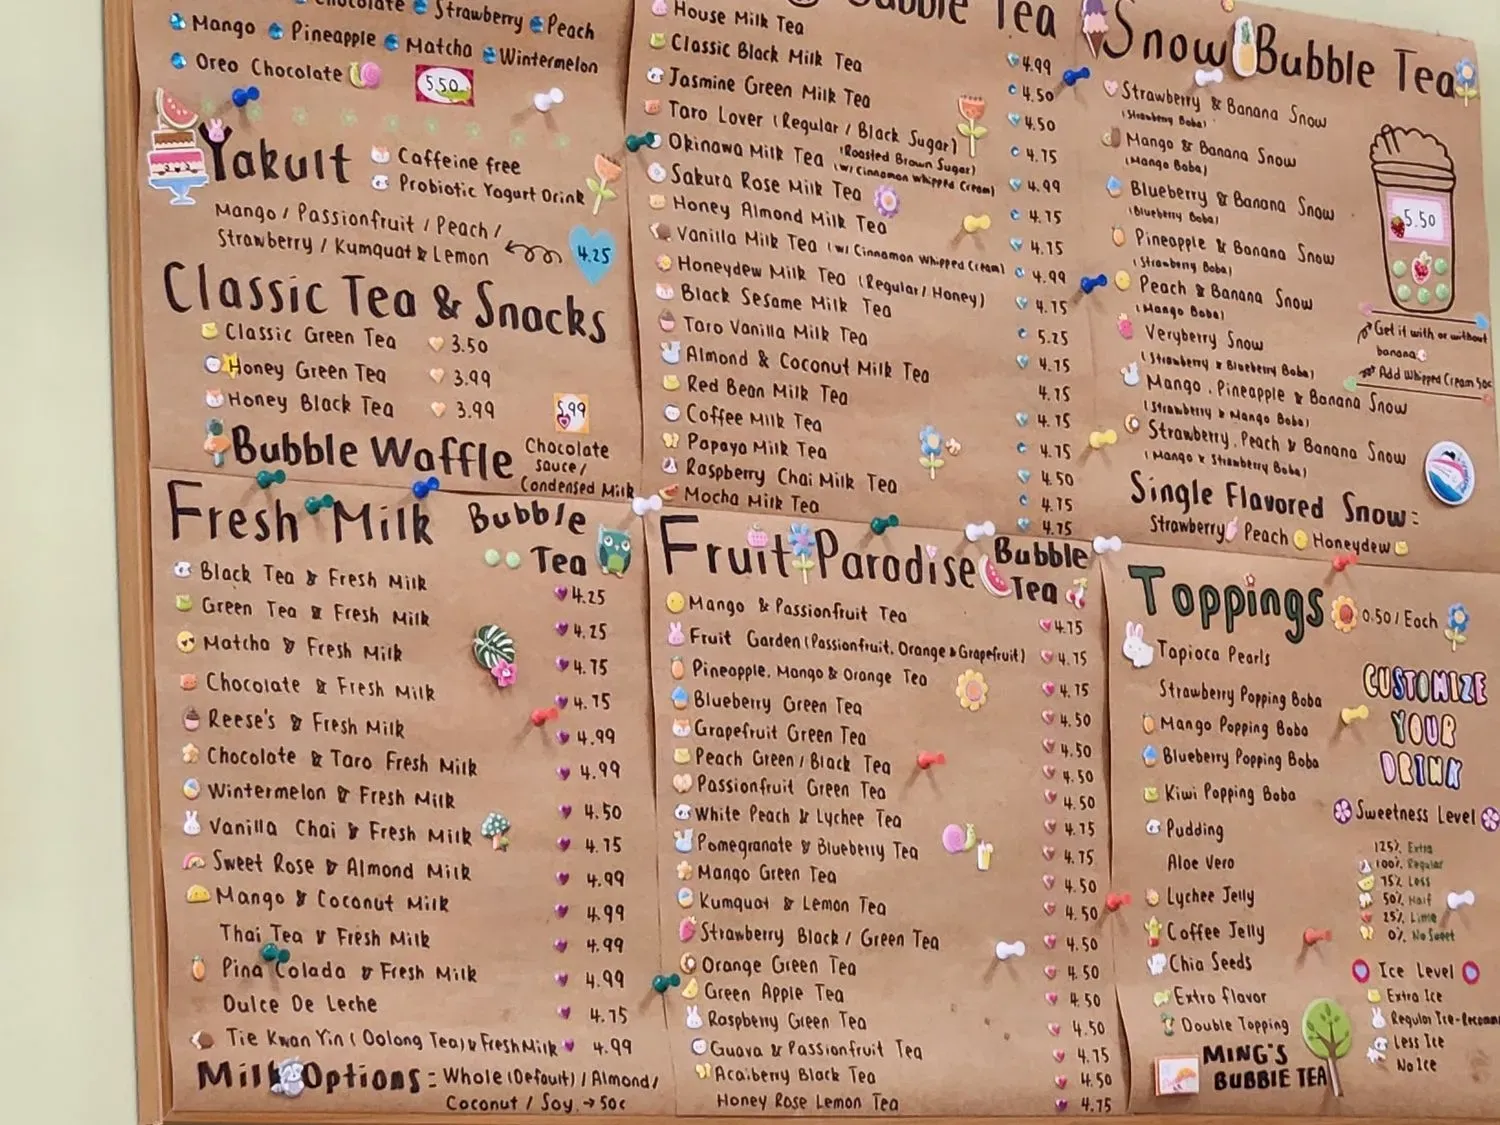 Chocolate Strawberry Peach
Mango Pineapple Matcha Wintermelon
Oreo Chocolate 5.50
Yakult
Caffeine free
Probiotic Yogurt Drink
Mango / Passionfruit / Peach /
Strawberry / Kumquat & Lemon 4.25
Classic Tea & Snacks
Classic Green Tea 3.50
Honey Green Tea 3.99
Honey Black Tea 3.99
Bubble Waffle 5.99
Chocolate
sauce /
Condensed Milk
Bubble Tea
House Milk Tea 4.99
Classic Black Milk Tea 4.50
Jasmine Green Milk Tea 4.50
Taro Lover (Regular / Black Sugar) 4.75
Okinawa Milk Tea (Roasted Brown Sugar) 4.99
(w/ Cinnamon Whipped Cream)
Sakura Rose Milk Tea 4.75
Honey Almond Milk Tea 4.75
Vanilla Milk Tea (w/ Cinnamon Whipped Cream) 4.99
Honeydew Milk Tea (Regular / Honey) 4.75
Black Sesame Milk Tea 5.25
Taro Vanilla Milk Tea 4.75
Almond & Coconut Milk Tea 4.75
Red Bean Milk Tea 4.75
Coffee Milk Tea 4.75
Papaya Milk Tea 4.50
Raspberry Chai Milk Tea 4.75
Mocha Milk Tea 4.75
Snow Bubble Tea
Strawberry & Banana Snow
(Strawberry Boba)
Mango & Banana Snow
(Mango Boba)
Blueberry & Banana Snow
(Blueberry Boba)
Pineapple & Banana Snow
(Strawberry Boba)
Peach & Banana Snow
(Mango Boba)
Veryberry Snow
(Strawberry & Blueberry Boba)
Mango, Pineapple & Banana Snow
(Strawberry & Mango Boba)
Strawberry, Peach & Banana Snow
(Mango & Strawberry Boba)
5.50
Get it with or without
banana
Add Whipped Cream 50c
Single Flavored Snow:
Strawberry Peach Honeydew
Fresh Milk Bubble Tea
Black Tea & Fresh Milk 4.25
Green Tea & Fresh Milk 4.25
Matcha & Fresh Milk 4.75
Chocolate & Fresh Milk 4.75
Reese's & Fresh Milk 4.99
Chocolate & Taro Fresh Milk 4.99
Wintermelon & Fresh Milk 4.50
Vanilla Chai & Fresh Milk 4.75
Sweet Rose & Almond Milk 4.99
Mango & Coconut Milk 4.99
Thai Tea & Fresh Milk 4.99
Pina Colada & Fresh Milk 4.99
Dulce De Leche 4.75
Tie Kwan Yin (Oolong Tea) & Fresh Milk 4.99
Milk Options: Whole (Default) / Almond /
Coconut / Soy → 50c
Fruit Paradise Bubble Tea
Mango & Passionfruit Tea 4.75
Fruit Garden (Passionfruit, Orange & Grapefruit) 4.75
Pineapple, Mango & Orange Tea 4.75
Blueberry Green Tea 4.50
Grapefruit Green Tea 4.50
Peach Green / Black Tea 4.50
Passionfruit Green Tea 4.50
White Peach & Lychee Tea 4.75
Pomegranate & Blueberry Tea 4.75
Mango Green Tea 4.50
Kumquat & Lemon Tea 4.50
Strawberry Black / Green Tea 4.50
Orange Green Tea 4.50
Green Apple Tea 4.50
Raspberry Green Tea 4.50
Guava & Passionfruit Tea 4.75
Acaiberry Black Tea 4.50
Honey Rose Lemon Tea 4.75
Toppings 0.50 / Each
Tapioca Pearls
Strawberry Popping Boba
Mango Popping Boba
Blueberry Popping Boba
Kiwi Popping Boba
Pudding
Aloe Vera
Lychee Jelly
Coffee Jelly
Chia Seeds
Extra flavor
Double Topping
CUSTOMIZE
YOUR
DRINK
Sweetness Level
125% Extra
100% Regular
75% Less
50% Half
25% Little
0% No Sweet
Ice Level
Extra Ice
Regular Ice-
Less Ice
No Ice
MING'S
BUBBLE TEA